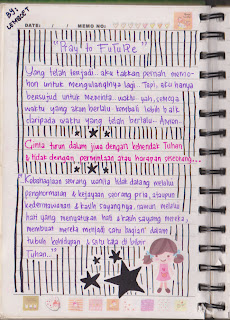 BY:
DATE:
MEMO NO:
"Pray to FuTuRe"
Yang telah terjadi.. aku takkan pernah memo-
hon untuk mengulanginya lagi.. Tapi, aku hanya
bersujud untuk meminta.. waktu yah, semoga
waktu yang akan berlalu kembali lebih baik
daripada waktu yang telah berlalu.. Amien..
Cinta turun dalam jiwa dengan kehendak Tuhan
& tidak dengan permintaan atau harapan seseorang...
Kebahagiaan seorang wanita tidak datang melalui
penghormatan & kejayaan seorang pria, ataupun
kedermawanan & kasih sayangnya, namun melalui
hati yang menyatukan hati & kasih sayang mereka,
membuat mereka menjadi satu bagian dalam
tubuh kehidupan & satu kata di bibir
Tuhan...